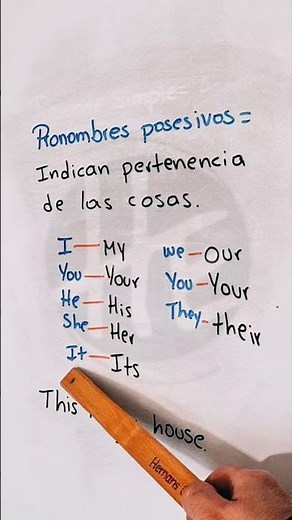 Pronombres posesivos =
Indican pertenencia
de las cosas.
I — My
You — Your
He — His
She — Her
It — Its
We — Our
You — Your
They — their
This house.
Hernans